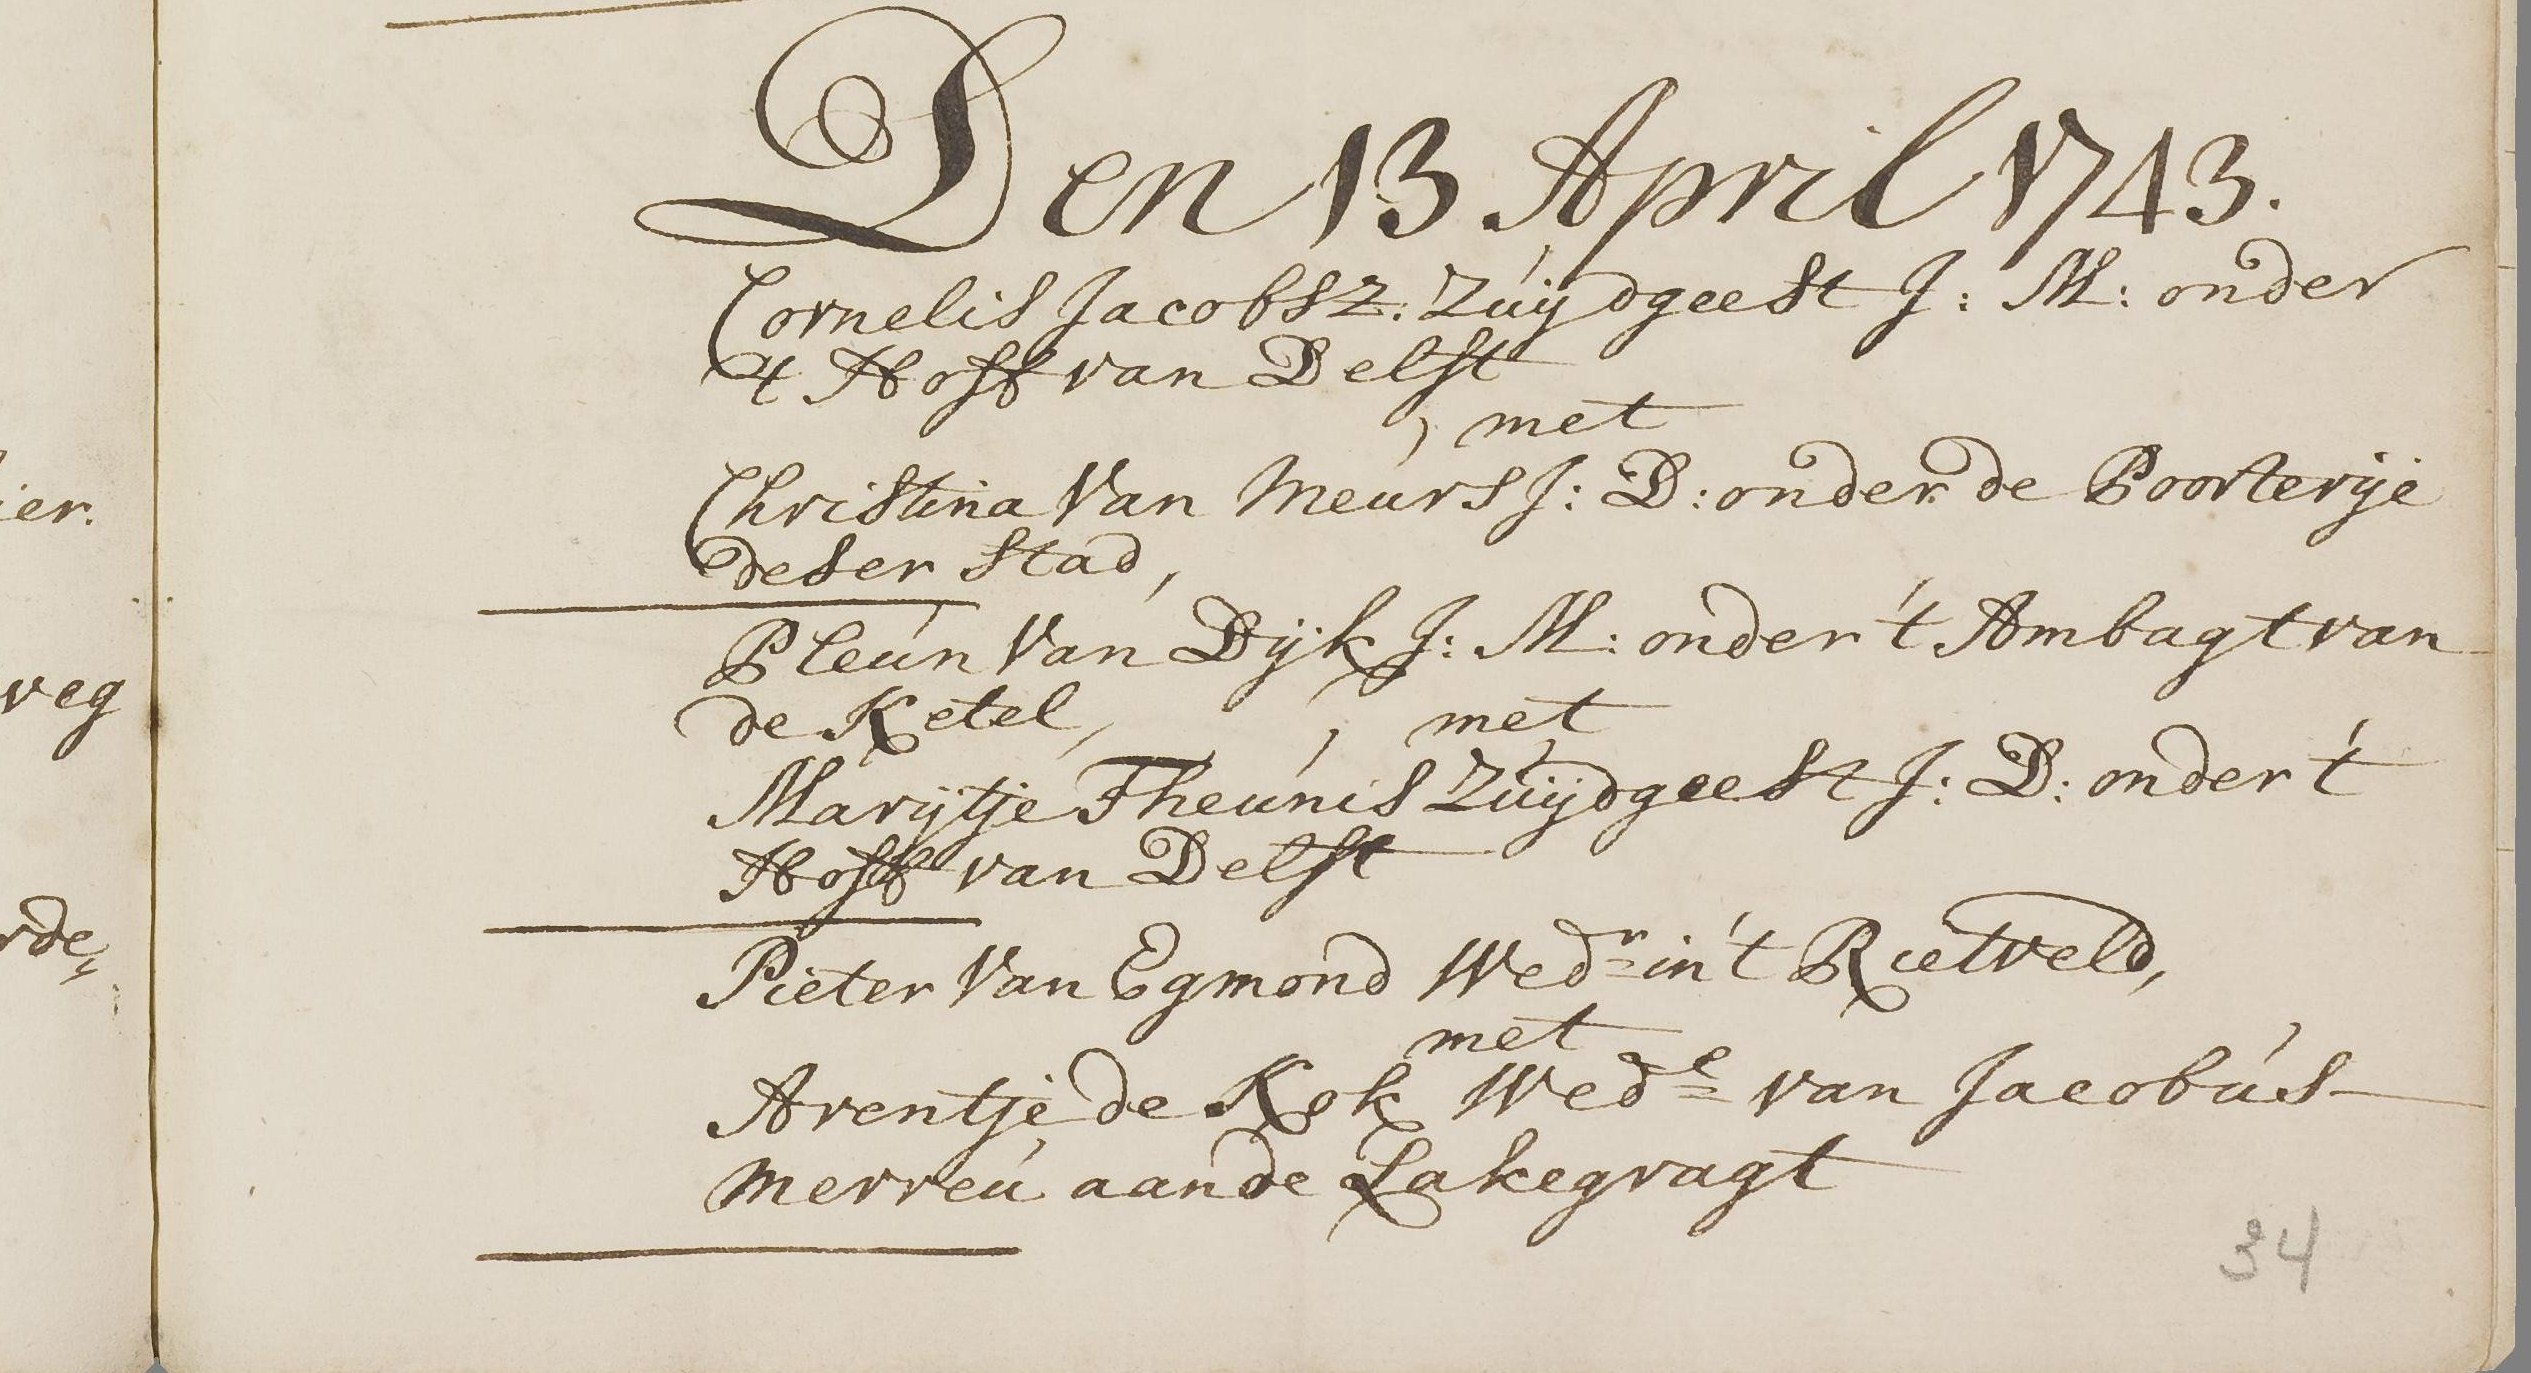 Den 13 April 1743.
Cornelis Jacobsz. Zuijdgeest J: M: onder
't Hoff van Delft
, met
Christina Van Meurs J: D: onder de Poorterije
deser Stad,
Pleun Van Dijk J: M: onder 't Ambagt van
de Ketel, , met
Marijtje Theunis Zuijdgeest J: D: onder 't
Hoff van Delft
Pieter Van Egmond Wedr in 't Rietveld,
met
Arentje de Kok Wede van Jacobus
Merreu aan de Lakegragt
34
ier.
weg
rde,